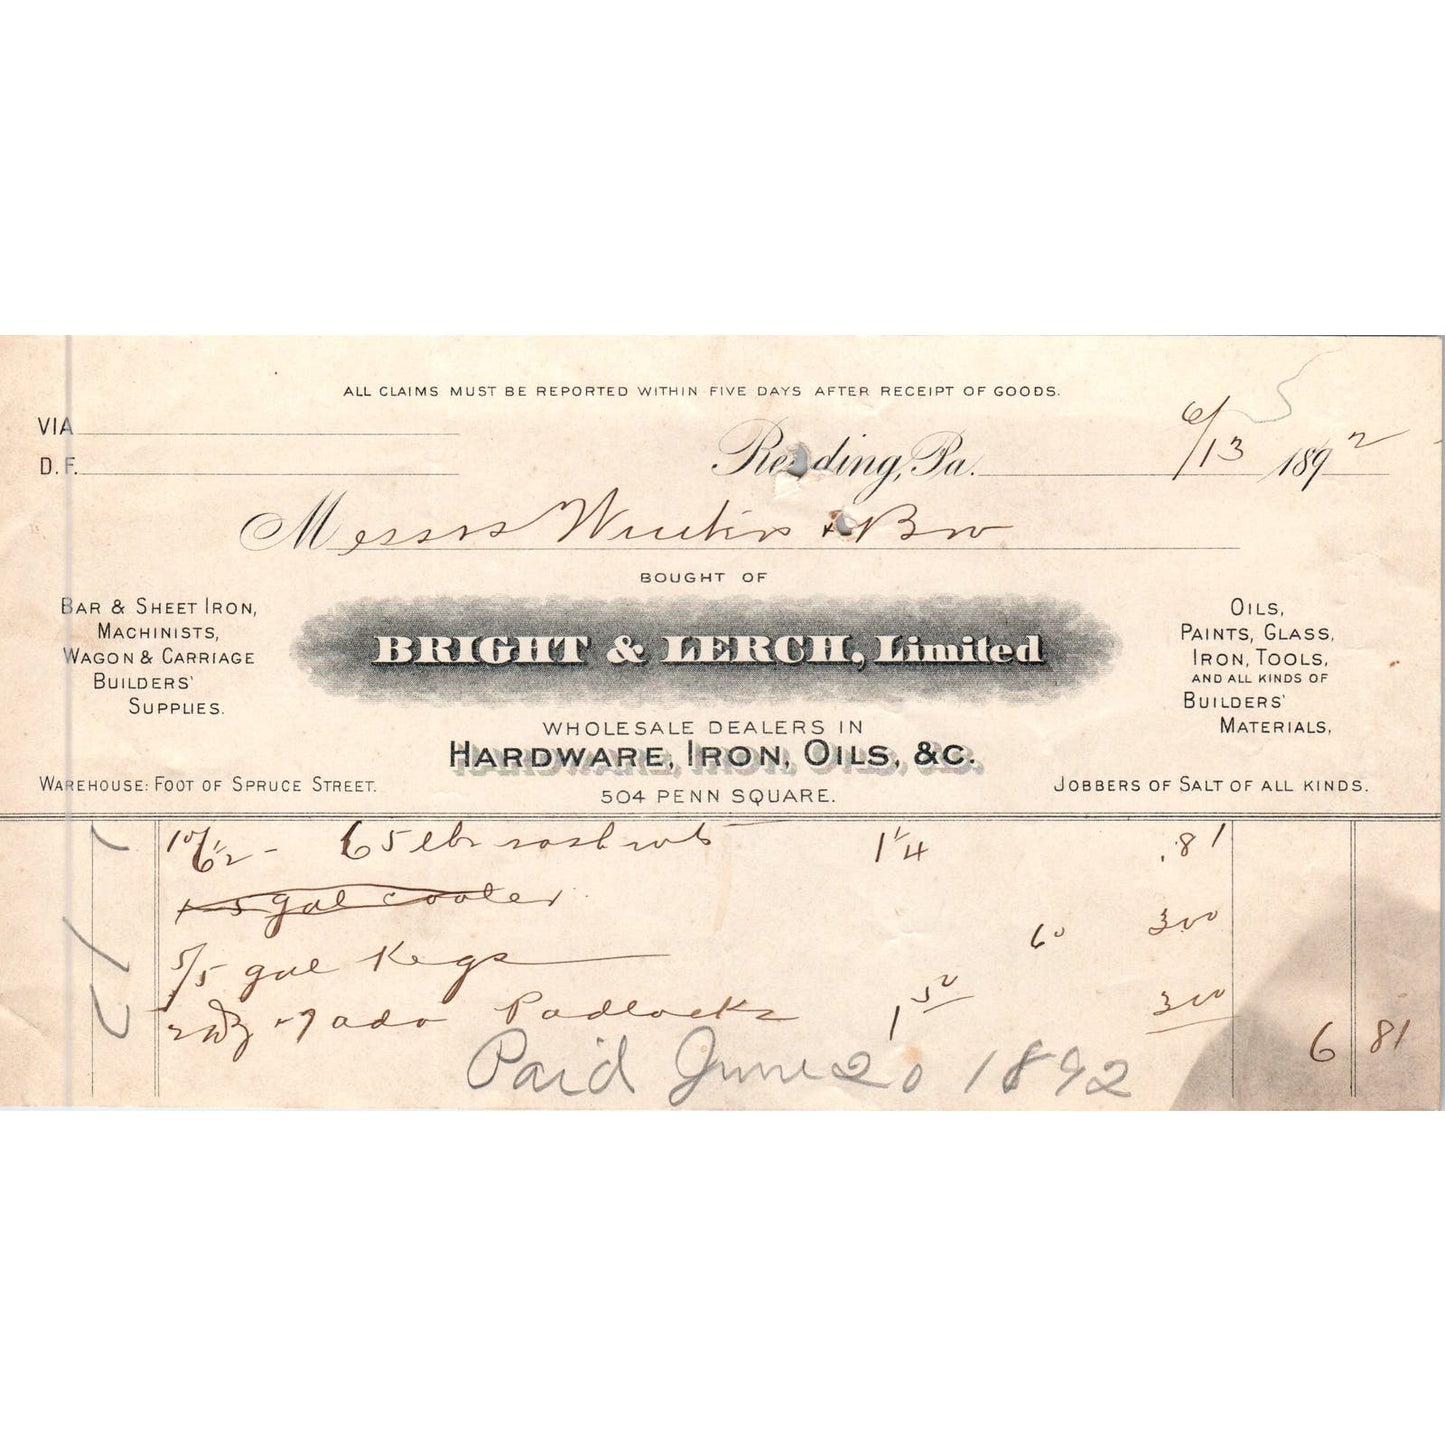 ALL CLAIMS MUST BE REPORTED WITHIN FIVE DAYS AFTER RECEIPT OF GOODS.
VIA
D. F.
Reading, Pa. 6/13 1892
Messrs & Bro
BOUGHT OF
BAR & SHEET IRON,
MACHINISTS,
WAGON & CARRIAGE
BUILDERS'
SUPPLIES.
BRIGHT & LERCH, Limited
OILS,
PAINTS, GLASS,
IRON, TOOLS,
AND ALL KINDS OF
BUILDERS'
MATERIALS,
WHOLESALE DEALERS IN
HARDWARE, IRON, OILS, &C.
504 PENN SQUARE.
WAREHOUSE: FOOT OF SPRUCE STREET.
JOBBERS OF SALT OF ALL KINDS.
65 lbs 1 1/4 .81
5 gal cooler
5/5 gal Kegs 60 300
2 Padlocks 1 50 300
6 81
Paid June 20 1892